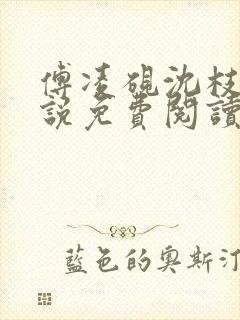 傅凌硯沈枝
說免費閱讀
藍色的奧斯汀